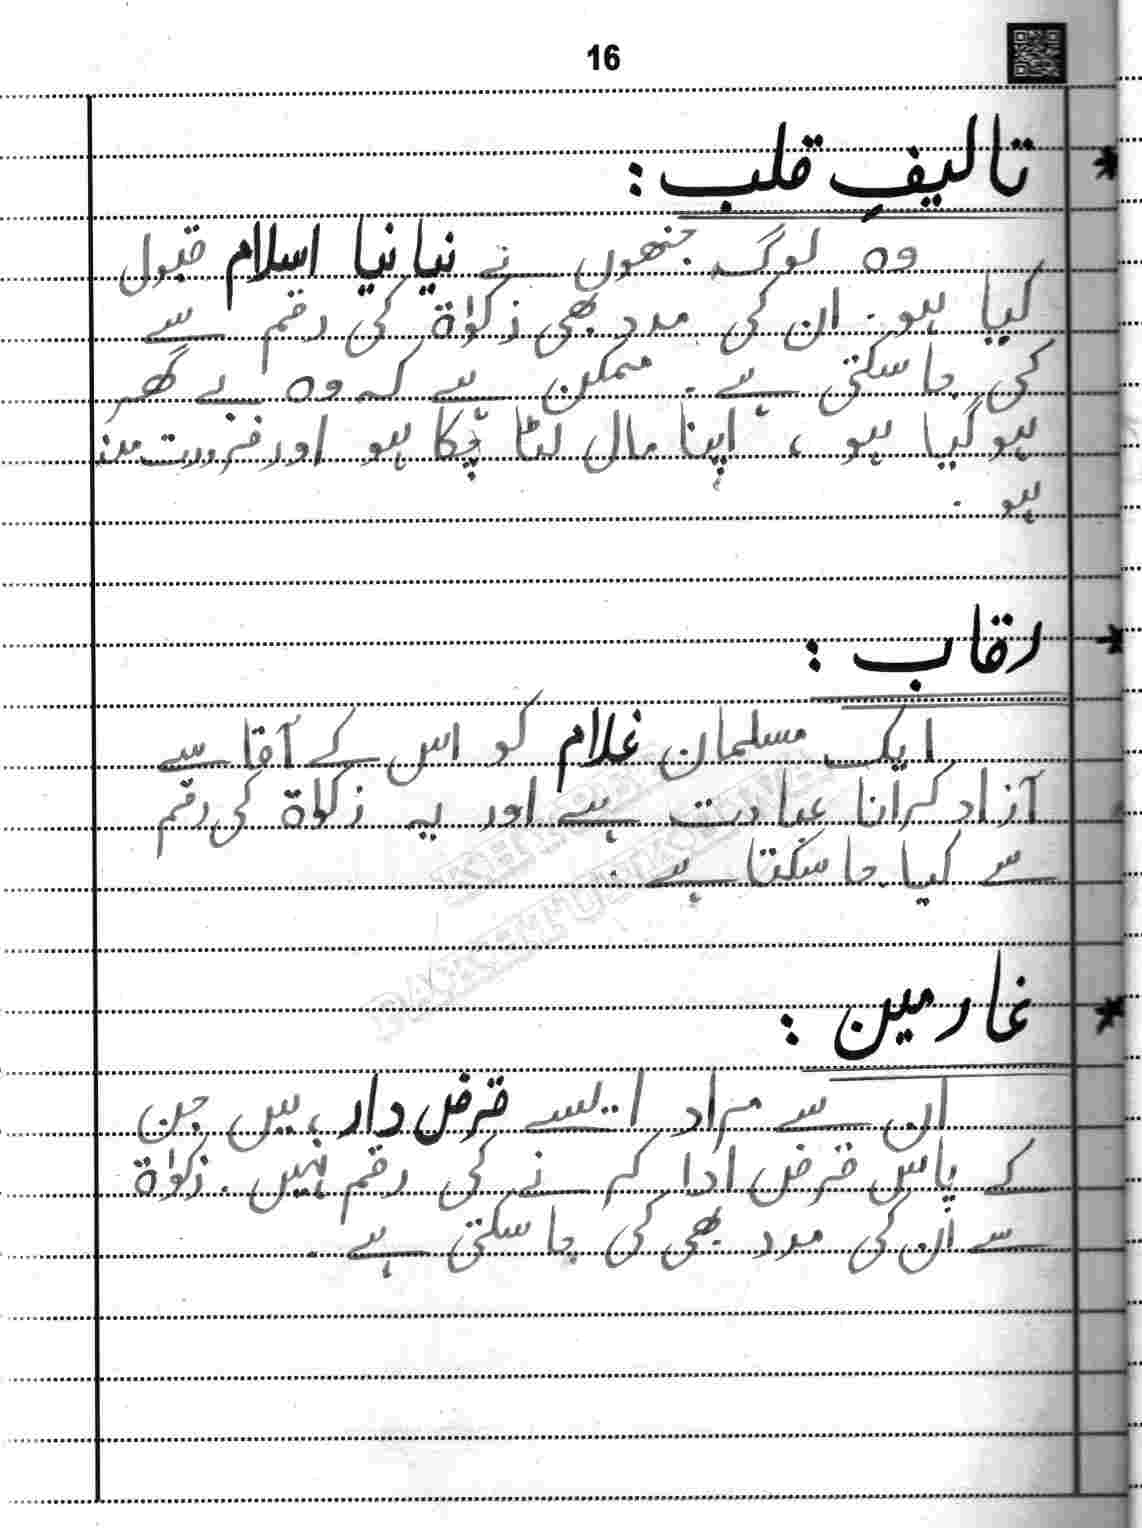 16
* تالیفِ قلب :
وہ لوگ جنھوں نے نیا نیا اسلام قبول
کیا ہو. ان کی مدد بھی زکوٰۃ کی رقم سے
کی جا سکتی ہے. ممکن ہے کہ وہ بے گھر
ہو گیا ہو ، اپنا مال لٹا چُکا ہو اور ضرورت مند
ہو .
* رقاب :
ایک مسلمان غلام کو اس کے آقا سے
آزاد کرانا عبادت ہے اور یہ زکوٰۃ کی رقم
سے کیا جا سکتا ہے .
KHYBER
PAKHTUNKHWA
* غارمین :
ان سے مراد ایسے قرض دار ہیں جن
کے پاس قرض ادا کرنے کی رقم نہیں . زکوٰۃ
سے اُن کی مدد بھی کی جا سکتی ہے .